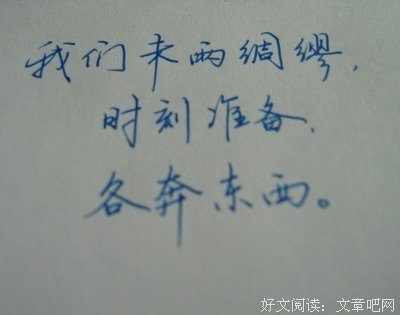 我们未两绸缪,
时刻准备,
各奔东西。
好文阅读：文章吧网